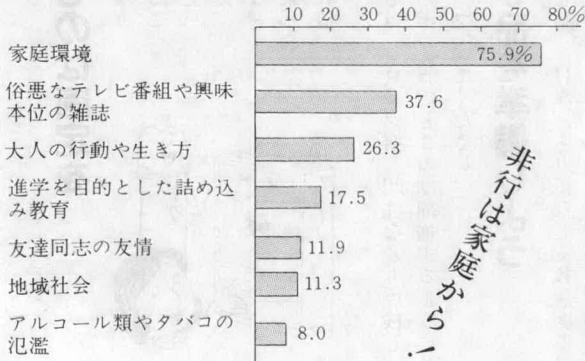 10 20 30 40 50 60 70 80%
家庭環境 75.9%
俗悪なテレビ番組や興味
本位の雑誌 37.6
大人の行動や生き方 26.3
進学を目的とした詰め込
み教育 17.5
友達同志の友情 11.9
地域社会 11.3
アルコール類やタバコの
氾濫 8.0
非行は家庭から!